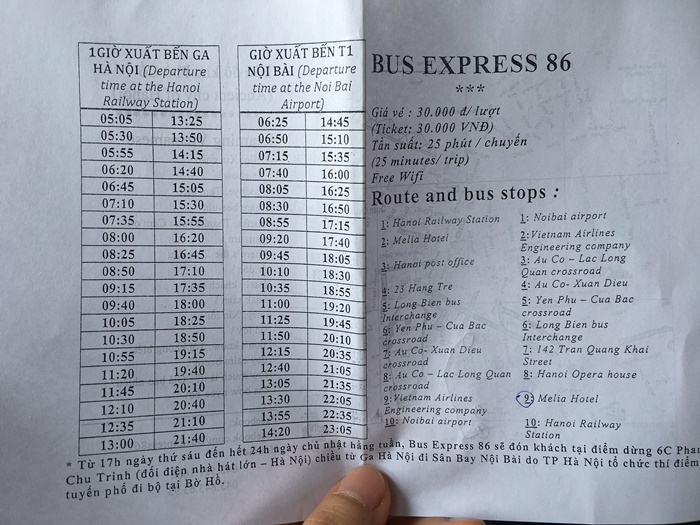 1GIỜ XUẤT BẾN GA
HÀ NỘI (Departure
time at the Hanoi
Railway Station)
05:05 13:25
05:30 13:50
05:55 14:15
06:20 14:40
06:45 15:05
07:10 15:30
07:35 15:55
08:00 16:20
08:25 16:45
08:50 17:10
09:15 17:35
09:40 18:00
10:05 18:25
10:30 18:50
10:55 19:15
11:20 19:40
11:45 20:10
12:10 20:40
12:35 21:10
13:00 21:40
GIỜ XUẤT BẾN T1
NỘI BÀI (Departure
time at the Noi Bai
Airport)
06:25 14:45
06:50 15:10
07:15 15:35
07:40 16:00
08:05 16:25
08:30 16:50
08:55 17:15
09:20 17:40
09:45 18:05
10:10 18:30
10:35 18:55
11:00 19:20
11:25 19:45
11:50 20:10
12:15 20:35
12:40 21:05
13:05 21:35
13:30 22:05
13:55 22:35
14:20 23:05
BUS EXPRESS 86
***
Giá vé : 30.000 đ/ lượt
(Ticket: 30.000 VNĐ)
Tần suất: 25 phút / chuyến
(25 minutes/ trip)
Free Wifi
Route and bus stops :
1: Hanoi Railway Station
2: Melia Hotel
3: Hanoi post office
4: 23 Hang Tre
5: Long Bien bus
Interchange
6: Yen Phu – Cua Bac
crossroad
7: Au Co- Xuan Dieu
crossroad
8: Au Co – Lac Long Quan
crossroad
9: Vietnam Airlines
Engineering company
10: Noibai airport
1: Noibai airport
2: Vietnam Airlines
Engineering company
3: Au Co – Lac Long
Quan crossroad
4: Au Co- Xuan Dieu
5: Yen Phu – Cua Bac
crossroad
6: Long Bien bus
Interchange
7: 142 Tran Quang Khai
Street
8: Hanoi Opera house
9: Melia Hotel
10: Hanoi Railway
Station
* Từ 17h ngày thứ sáu đến hết 24h ngày chủ nhật hàng tuần, Bus Express 86 sẽ đón khách tại điểm dừng 6C Phan
Chu Trinh (đối diện nhà hát lớn – Hà Nội) chiều từ Ga Hà Nội đi Sân Bay Nội Bài do TP Hà Nội tổ chức thí điểm
tuyến phố đi bộ tại Bờ Hồ.